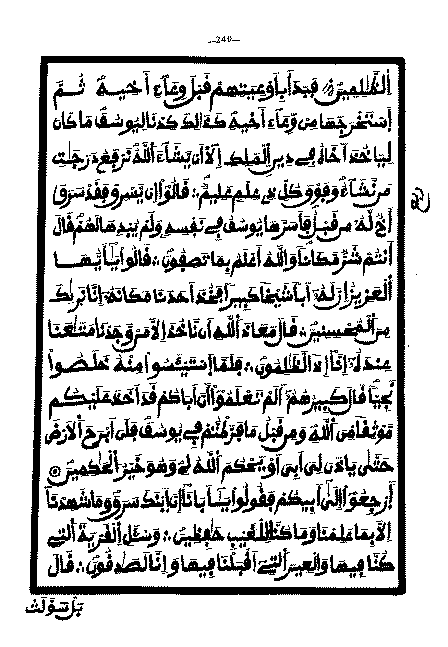 —240—
الظلمين فبدأ بأوعيتهم قبل وعاء أخيه ثم
استخرجها من وعاء أخيه كذلك كدنا ليوسف ما كان
لياخذ أخاه في دين الملك إلا أن يشاء الله نرفع درجت
من نشاء وفوق كل ذي علم عليم ∴ قالوا إن يسرق فقد سرق
أخ له من قبل فأسرها يوسف في نفسه ولم يبدها لهم قال
أنتم شر مكانا والله أعلم بما تصفون ∴ قالوا يأيها
العزيز إن له أبا شيخا كبيرا فخذ أحدنا مكانه إنا نريك
من المحسنين ∴ قال معاذ الله أن ناخذ إلا من وجدنا متعنا
عنده إنا إذا لظلمون ∴ فلما استيئسوا منه خلصوا
نجيا قال كبيرهم ألم تعلموا أن أباكم قد أخذ عليكم
موثقا من الله ومن قبل ما فرطتم في يوسف فلن أبرح الأرض
حتى ياذن لي أبي أو يحكم الله لي وهو خير الحكمين
ارجعوا إلى أبيكم فقولوا يأبانا إن ابنك سرق وما شهدنا
إلا بما علمنا وما كنا للغيب حفظين ∴ وسئل القرية التي
كنا فيها والعير التي أقبلنا فيها وإنا لصدقون ∴ قال
بل سولت